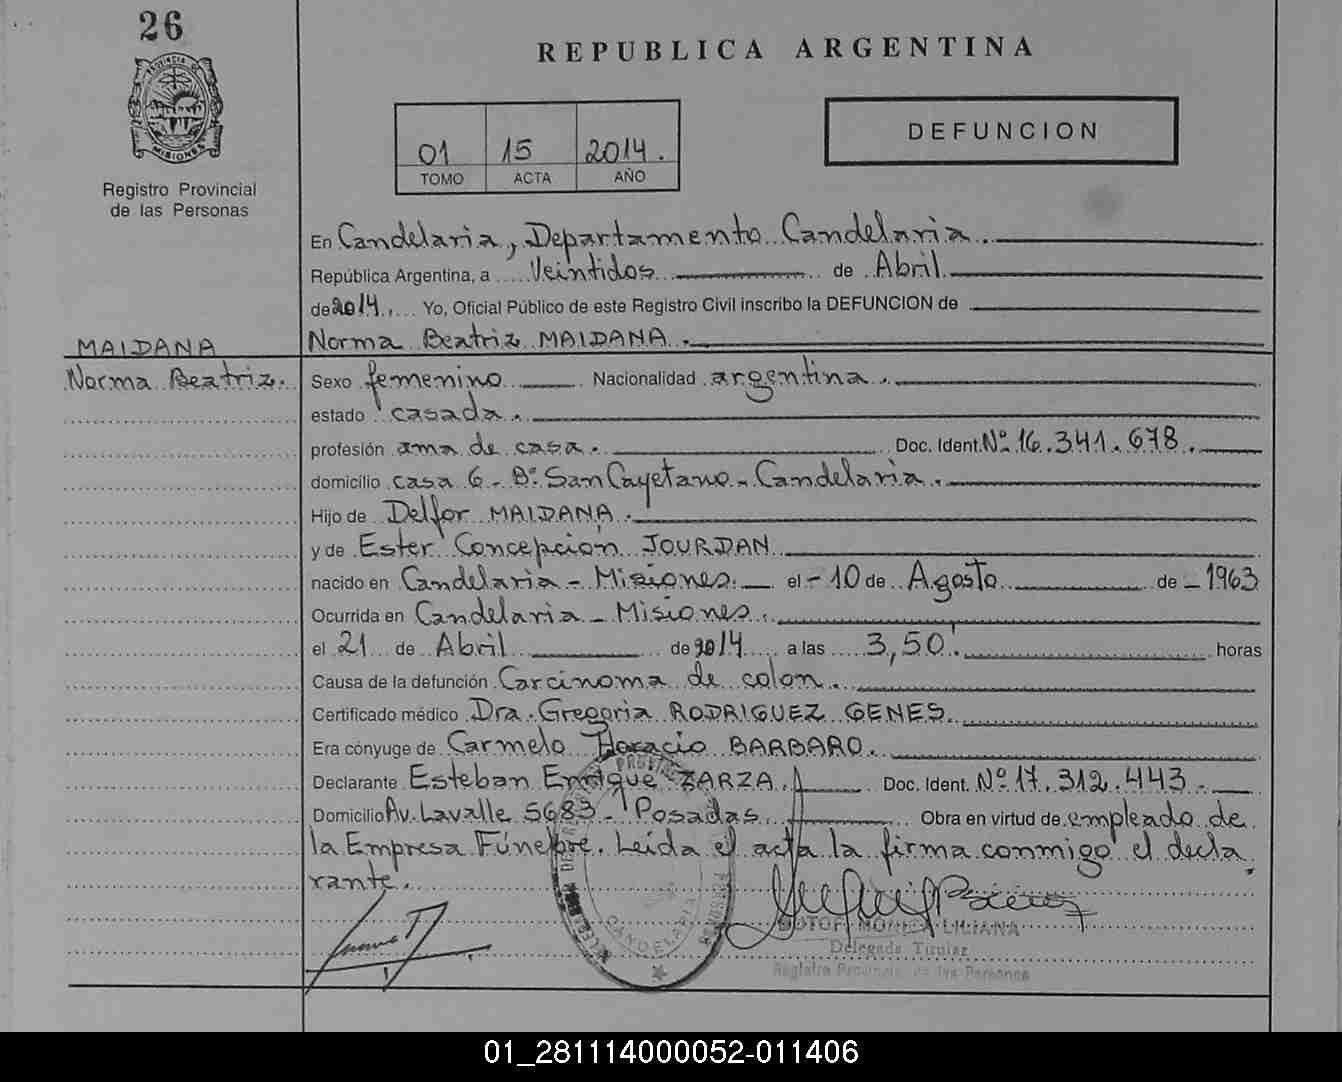 26
REPUBLICA ARGENTINA
PROVINCIA DE
MISIONES
Registro Provincial
de las Personas
01 15 2014.
TOMO ACTA AÑO
DEFUNCION
En Candelaria, Departamento Candelaria.
República Argentina, a Veintidos de Abril
de 2014. Yo, Oficial Público de este Registro Civil inscribo la DEFUNCION de
MAIDANA
Norma Beatriz MAIDANA.
Norma Beatriz.
Sexo femenino Nacionalidad argentina.
estado casada.
profesión ama de casa. Doc. Ident. Nº 16.341.678.
domicilio casa 6 - Bº San Cayetano - Candelaria.
Hijo de Delfor MAIDANA.
y de Ester Concepción JOURDAN
nacido en Candelaria - Misiones. el - 10 de Agosto de - 1963
Ocurrida en Candelaria - Misiones.
el 21 de Abril de 2014 a las 3,50' horas
Causa de la defunción Carcinoma de colon.
Certificado médico Dra. Gregoria RODRIGUEZ GENES.
Era cónyuge de Carmelo Horacio BARBARO.
Declarante Esteban Enrique ZARZA. Doc. Ident. Nº 17.312.443.
Domicilio Av. Lavalle 5683 - Posadas. Obra en virtud de empleado de
la Empresa Fúnebre. Leída el acta la firma conmigo el decla
rante.
CANDELARIA
MONICA LILIANA
Delegada Titular
Registro Provincial de las Personas
01_281114000052-011406